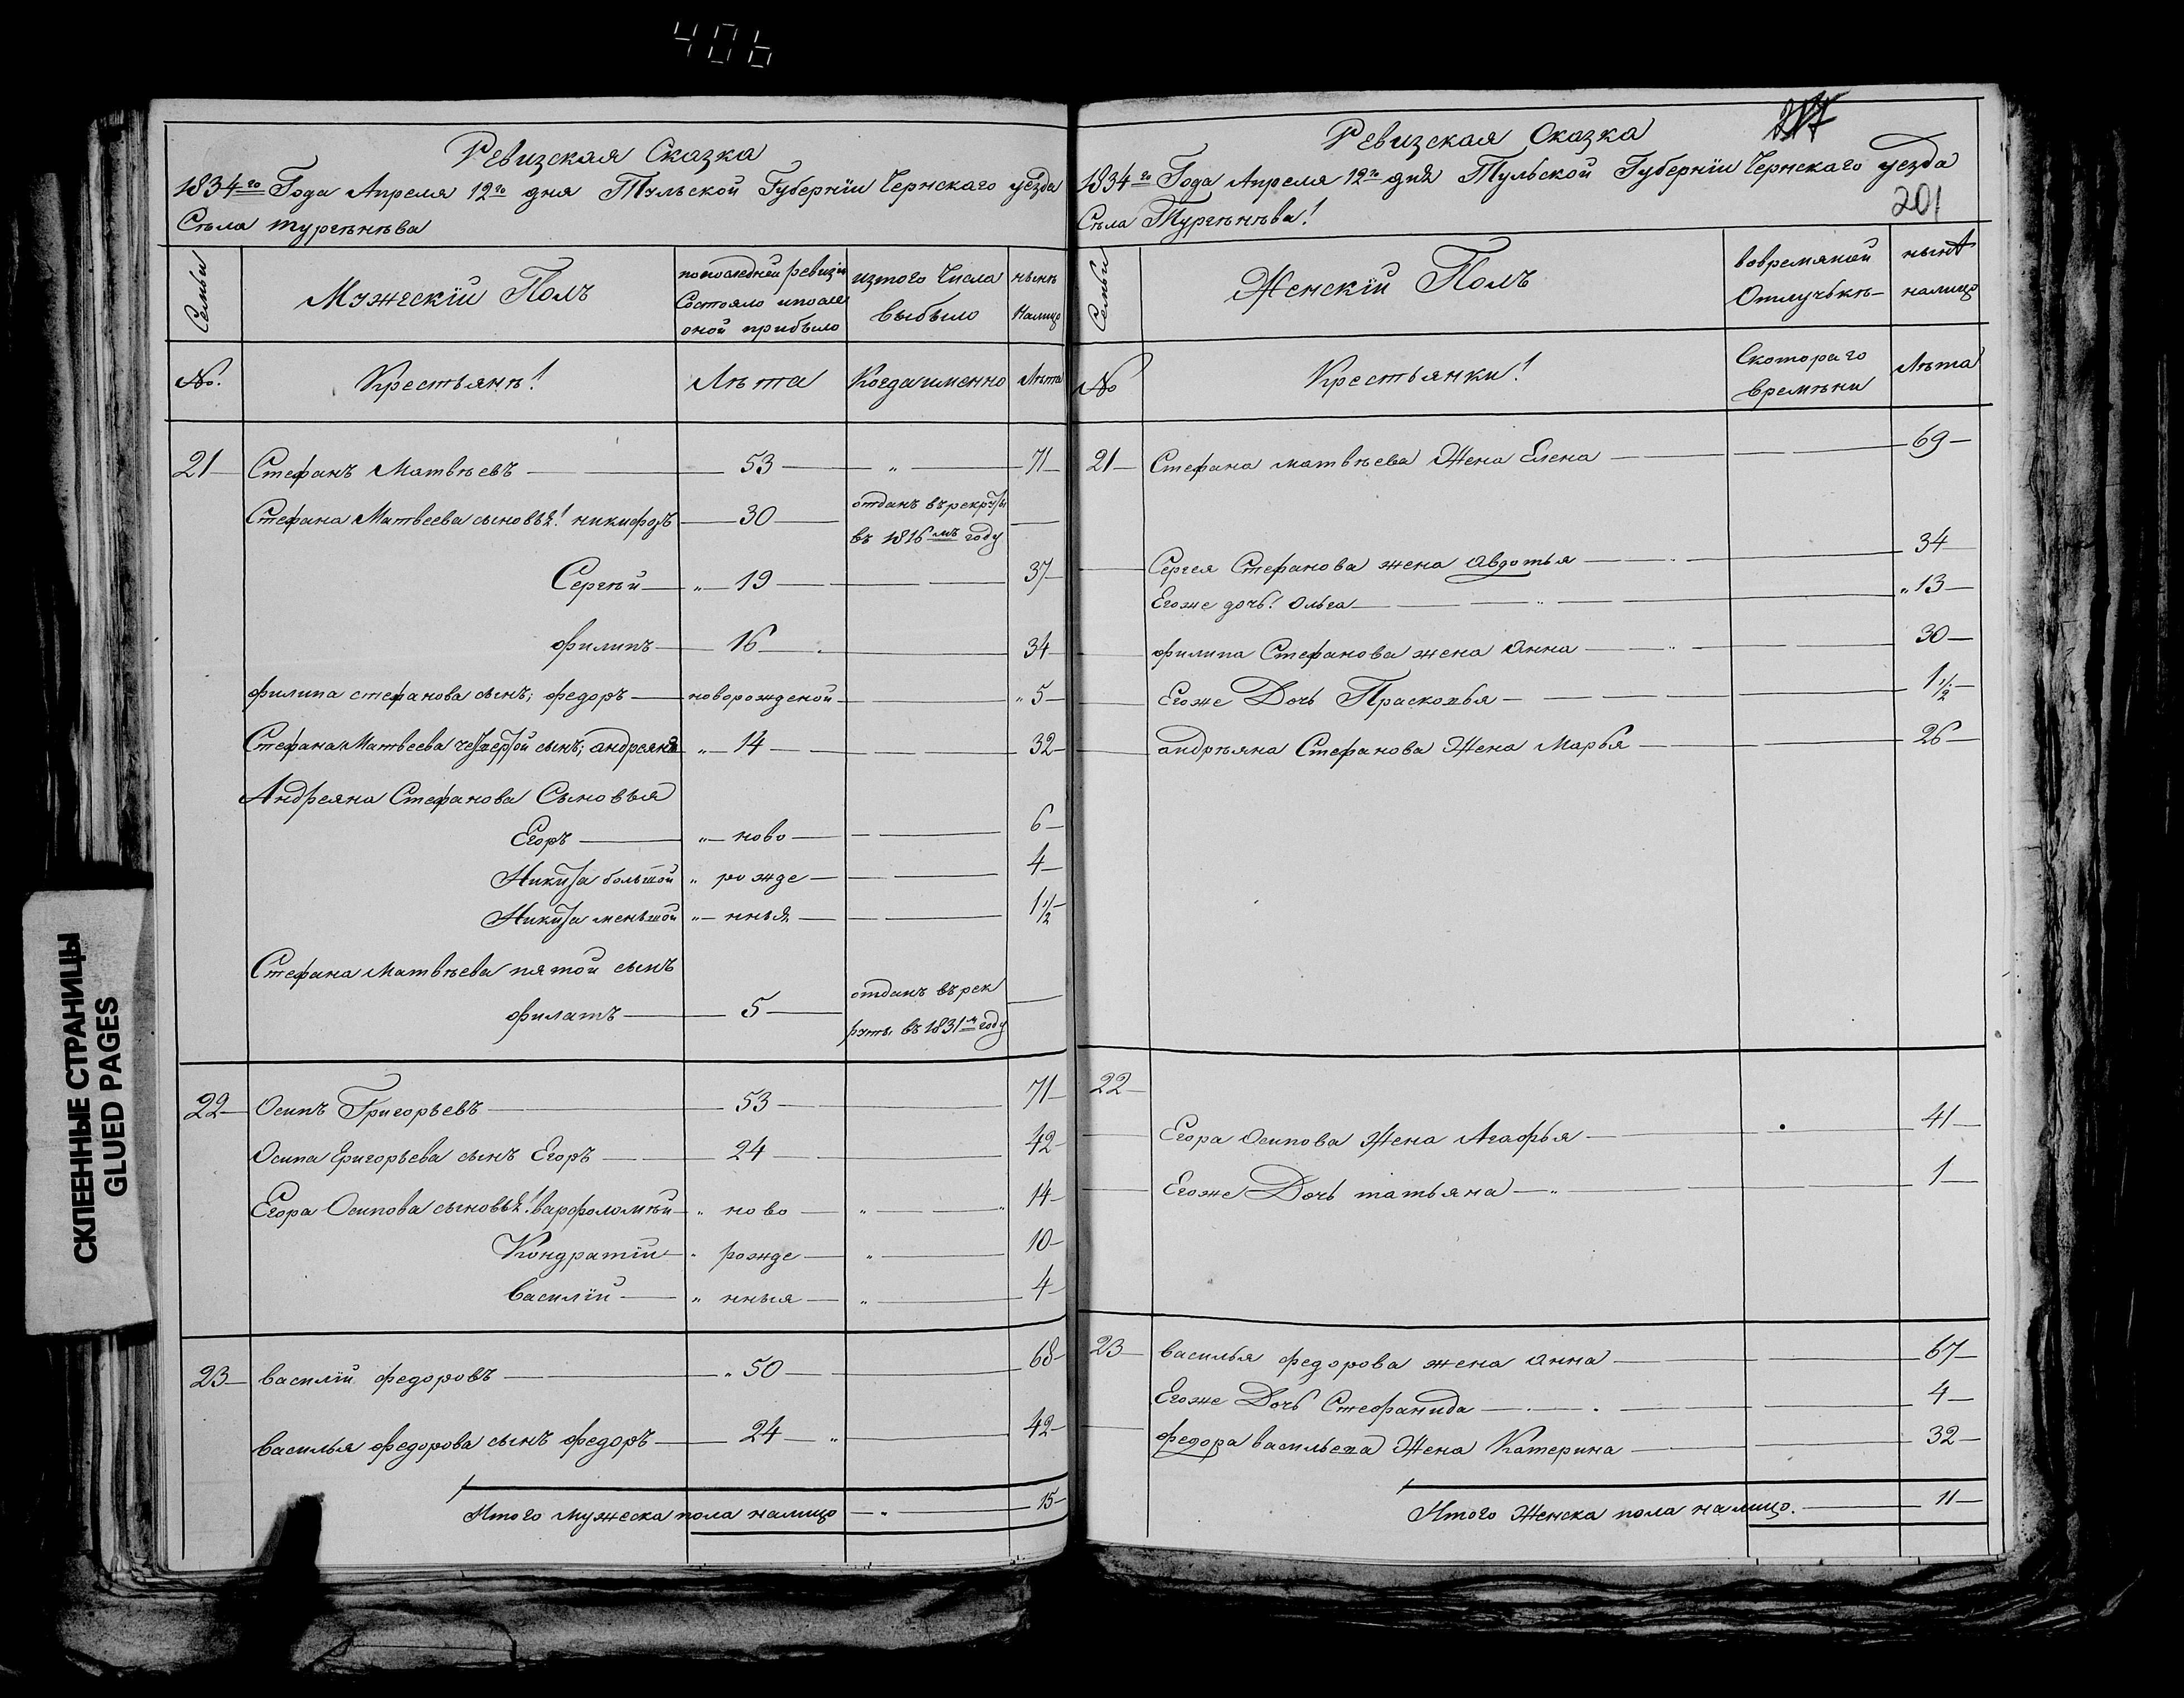 406
Ревизская Сказка
1834го Года Апреля 12го дня Тульской Губернiи Чернскаго уезда
Села тургенева
Семьи
Мужескiй Полъ
попоследней ревизiи Состояло ипосле оной прибыло
изтого Числа выбыло
ныне Налицо
№.
Крестьяне!
Лѣта
Когда именно
Лѣта
21 Стефанъ Матвѣевъ 53 " 71
Стефана Матвеева сыновья! никифоръ 30 отданъ врекруты
въ 1816мъ году
Сергѣй " 19 37
филипъ 16 34
филипа стефанова сынъ; федоръ новорожденой " 5
Стефана Матвеева четвертой сынъ; андреянъ " 14 32
Андреяна Стефанова Сыновья
Егоръ " ново 6
Никита большой " рожде 4
Никита меньшой " нныя 1 1/2
Стефана Матвѣева пятой сынъ
филатъ 5 отданъ врек
руты въ 1831м году
22 Осипъ Григорьевъ 53 71
Осипа Григорьева сынъ Егоръ 24 42
Егора Осипова сыновья! варфоломѣй " ново " 14
Кондратiй " рожде " 10
василiй " нныя " 4
23 василiй федоровъ " 50 68
василья федорова сынъ федоръ 24 " 42
Итого мужеска пола налицо 15
СКЛЕЕННЫЕ СТРАНИЦЫ
GLUED PAGES
Ревизская Сказка
1834го Года Апреля 12го дня Тульской Губернiи Чернскаго уезда
201
Села Тургенѣва!
Семьи
Женскiй Полъ
вовремяной Отлучькѣ
нынѣ налицо
№
Крестьянки!
Скотораго времѣни
Лѣта
21 Стефана матвѣева Жена Елена 69
Сергея Стефанова жена авдотья 34
Егоже дочь! Ольга " 13
филипа Стефанова жена анна 30
Егоже Дочь Прасковья 1 1/2
андрѣяна Стефанова Жена Марья 26
22
Егора Осипова Жена Агафья 41
Егоже Дочь татьяна 1
23 василья федорова жена анна 67
Егоже Дочь Стефанида 4
федора васильева Жена Катерина 32
Итого Женска пола налицо. 11